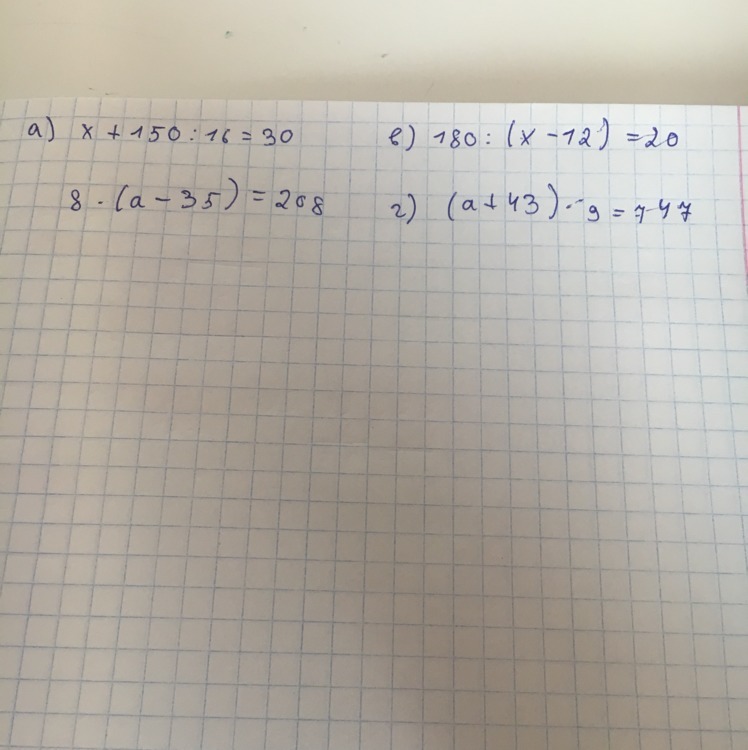 а) x + 150 : 16 = 30
в) 180 : (x - 12) = 20
8 · (a - 35) = 208
г) (a + 43) · 9 = 747